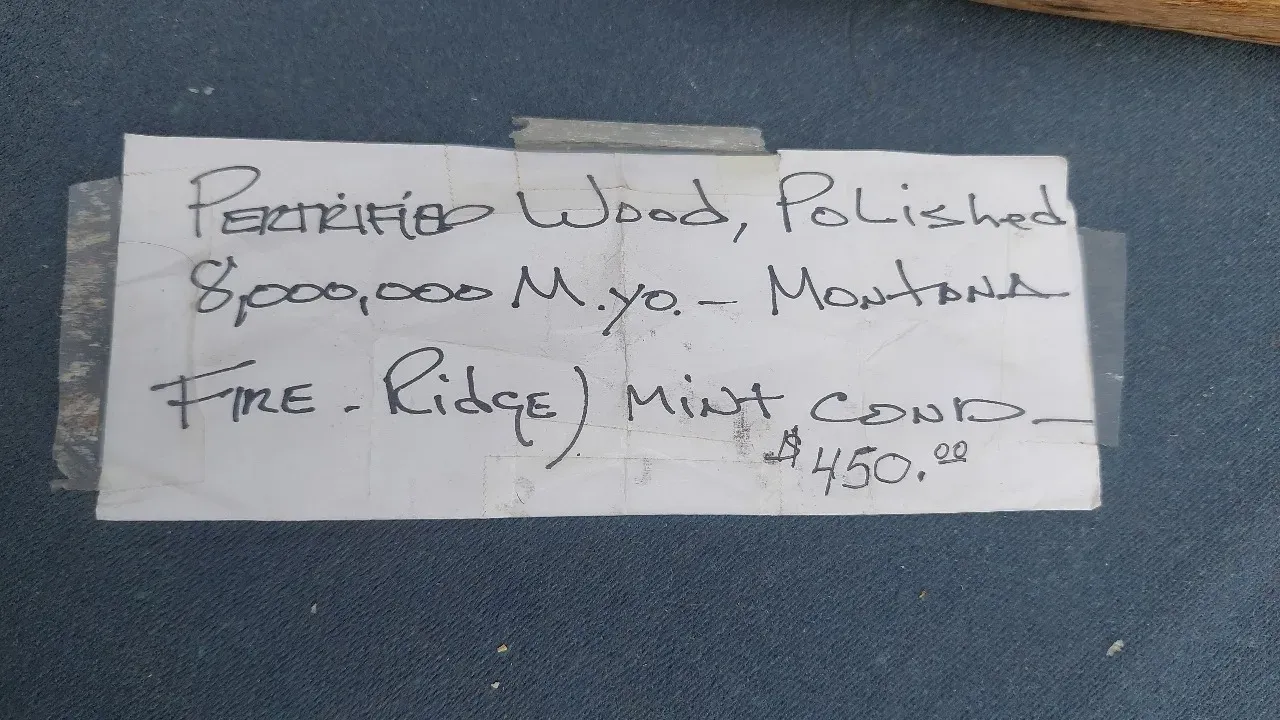 PERTRiFiED Wood, PoLished
8,000,000 M.yo. - MONTANA
FIRE - RidgE) MiNt COND -
$450.00